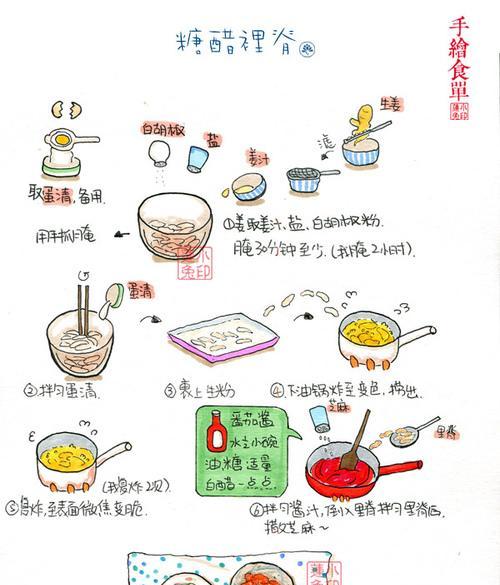 糖醋裡脊
手繪食單
生姜
白胡椒
盐
滤
姜汁
取蛋清,备用.
用手抓腌
①姜取姜汁,盐,白胡椒粉.
腌30分钟至少.(我腌2小时).
蛋清
②拌匀蛋清.
③裹上生粉
④下油锅炸至变色,捞出.
番茄酱
水1小碗
油糖适量
白醋一点点
芝麻
里脊
(我复炸2次)
⑤复炸,至表面微焦变脆.
⑥拌匀酱汁,倒入里脊拌匀里脊肉.
撒芝麻~